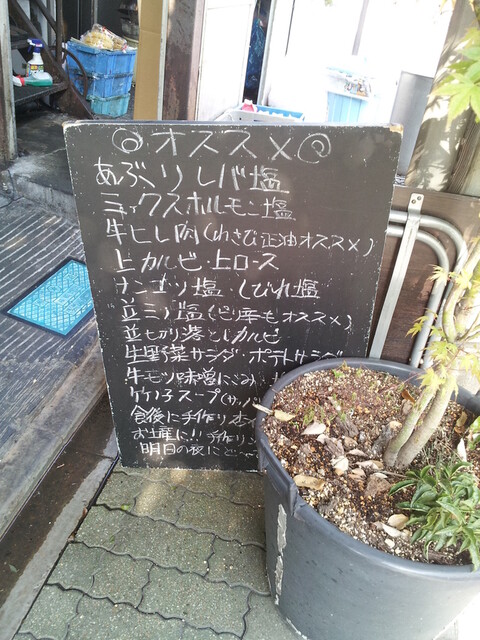 ◎オススメ◎
あぶりレバ塩
ミックスホルモン塩
牛ヒレ肉(わさび正油オススメ)
上カルビ・上ロース
ナンコツ塩・しびれ塩
並ミノ塩(どり辛もオススメ)
並切り落としカルビ
生野菜サラダ・ポテトサラダ
牛モツ味噌にこみ
竹の子スープ(サッパ
食後に手作り
お土産に!!手作り
明日の夜にど